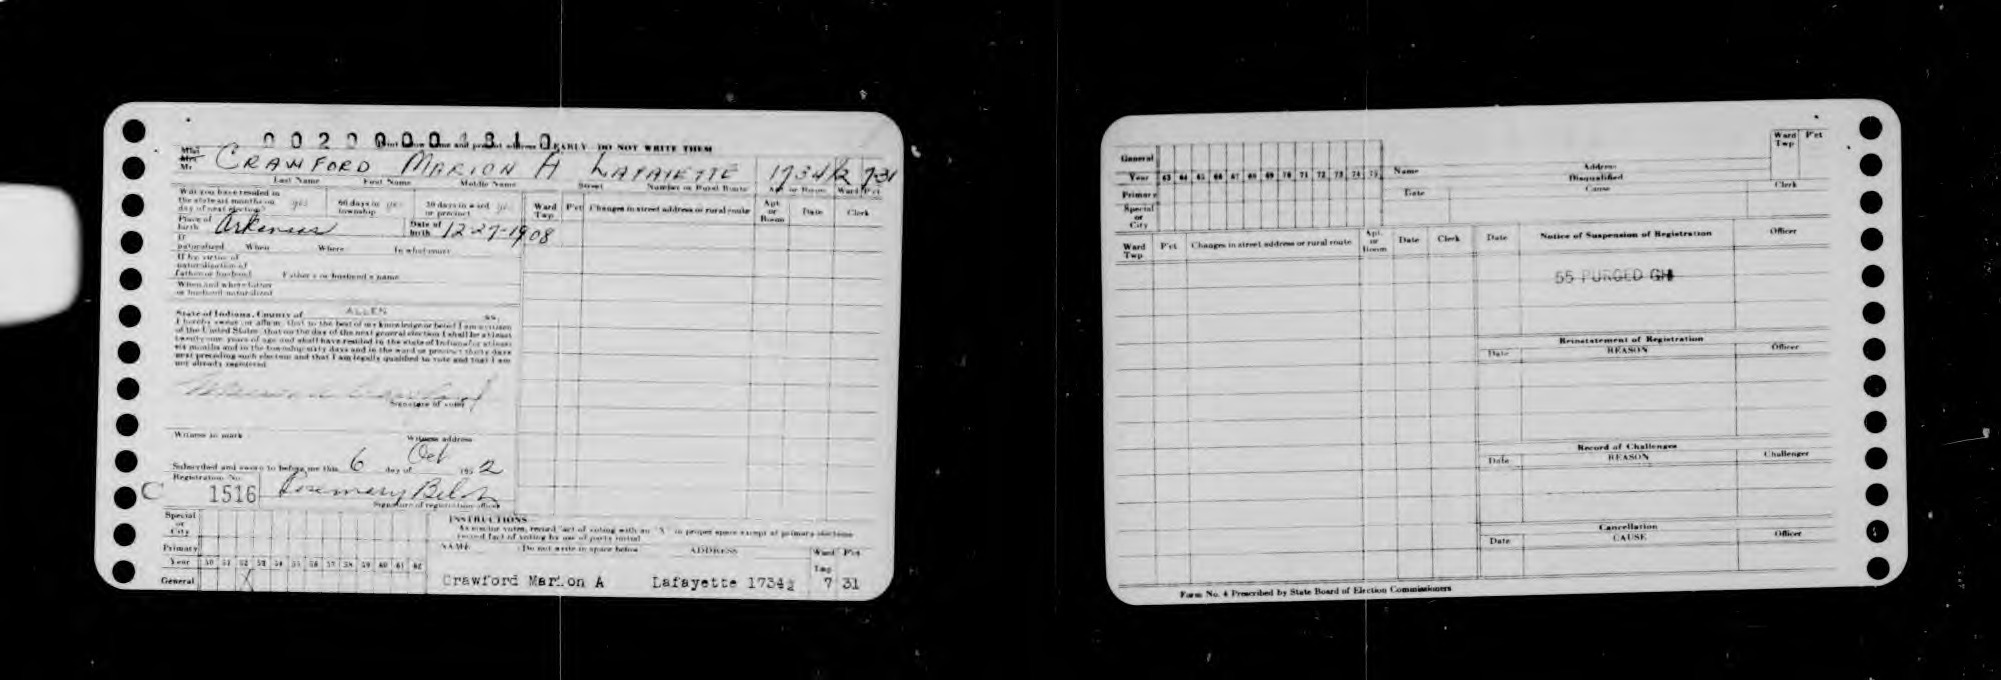 0020000 1310
Print below name and present address CLEARLY DO NOT WRITE THEM
Miss
Mrs
Mr
CRAWFORD MARION A LAFAYETTE 1734 1/2 7-31
Last Name First Name Middle Name Street Number or Rural Route Apt. or Room Ward Pct
Will you have resided in the state six months on day of next election? yes 60 days in township yes 30 days in ward or precinct yes
Ward Twp P'ct Changes in street address or rural route Apt. or Room Date Clerk
Place of birth Arkansas Date of birth 12-27-1908
If naturalized When Where In what court
If by virtue of naturalization of father or husband Father's or husband's name
When and where father or husband naturalized
State of Indiana, County of ALLEN ss,
I hereby swear (or affirm) that to the best of my knowledge or belief I am a citizen
of the United States, that on the day of the next general election I shall be at least
twenty-one years of age and shall have resided in the state of Indiana for at least
six months and in the township sixty days and in the ward or precinct thirty days
next preceding such election and that I am legally qualified to vote and that I am
not already registered.
Marion A Crawford
Signature of voter
Witness to mark Witness address
Subscribed and sworn to before me this 6 day of Oct 1952
Registration No.
C 1516 Rosemary
Signature of registration officer
Special or City
Primary
Year 50 51 52 53 54 55 56 57 58 59 60 61 62
General X
INSTRUCTIONS
As elector votes, record fact of voting with an "X" in proper space except at primary elections
record fact of voting by use of party initial
NAME (Do not write in space below) ADDRESS Ward Twp P'ct
Crawford Marion A Lafayette 1734½ 7 31
General
Year 63 64 65 66 67 68 69 70 71 72 73 74 75
Primary
Special or City
Name Address Ward Twp P'ct
Disqualified
Date Cause Clerk
Ward Twp P'ct Changes in street address or rural route Apt. or Room Date Clerk
Date Notice of Suspension of Registration Officer
55 PURGED GH
Reinstatement of Registration
Date REASON Officer
Record of Challenges
Date REASON Challenger
Cancellation
Date CAUSE Officer
Form No. 4 Prescribed by State Board of Election Commissioners